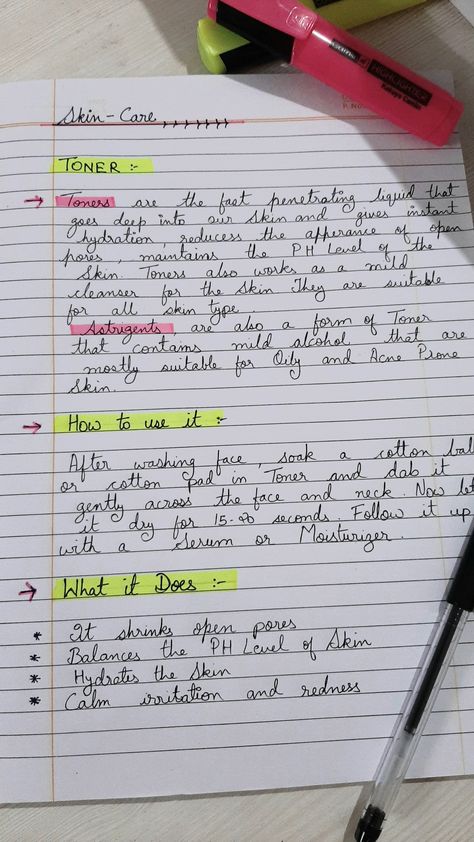 HIGHLIGHTER
Skin-Care
TONER :-
Toners are the fast penetrating liquid that
goes deep into our skin and gives instant
hydration, reducess the apperance of open
pores, maintains the PH Level of the
Skin. Toners also works as a mild
cleanser for the Skin They are suitable
for all skin type.
Astrigents are also a form of Toner
that contains mild alcohol that are
mostly suitable for Oily and Acne Prone
Skin.
How to use it :-
After washing face, soak a cotton ball
or cotton pad in Toner and dab it
gently across the face and neck. Now let
it dry for 15-20 seconds. Follow it up
with a Serum or Moisturizer.
What it Does :-
* It shrinks open pores
* Balances the PH Level of Skin
* Hydrates the Skin
* Calm irritation and redness